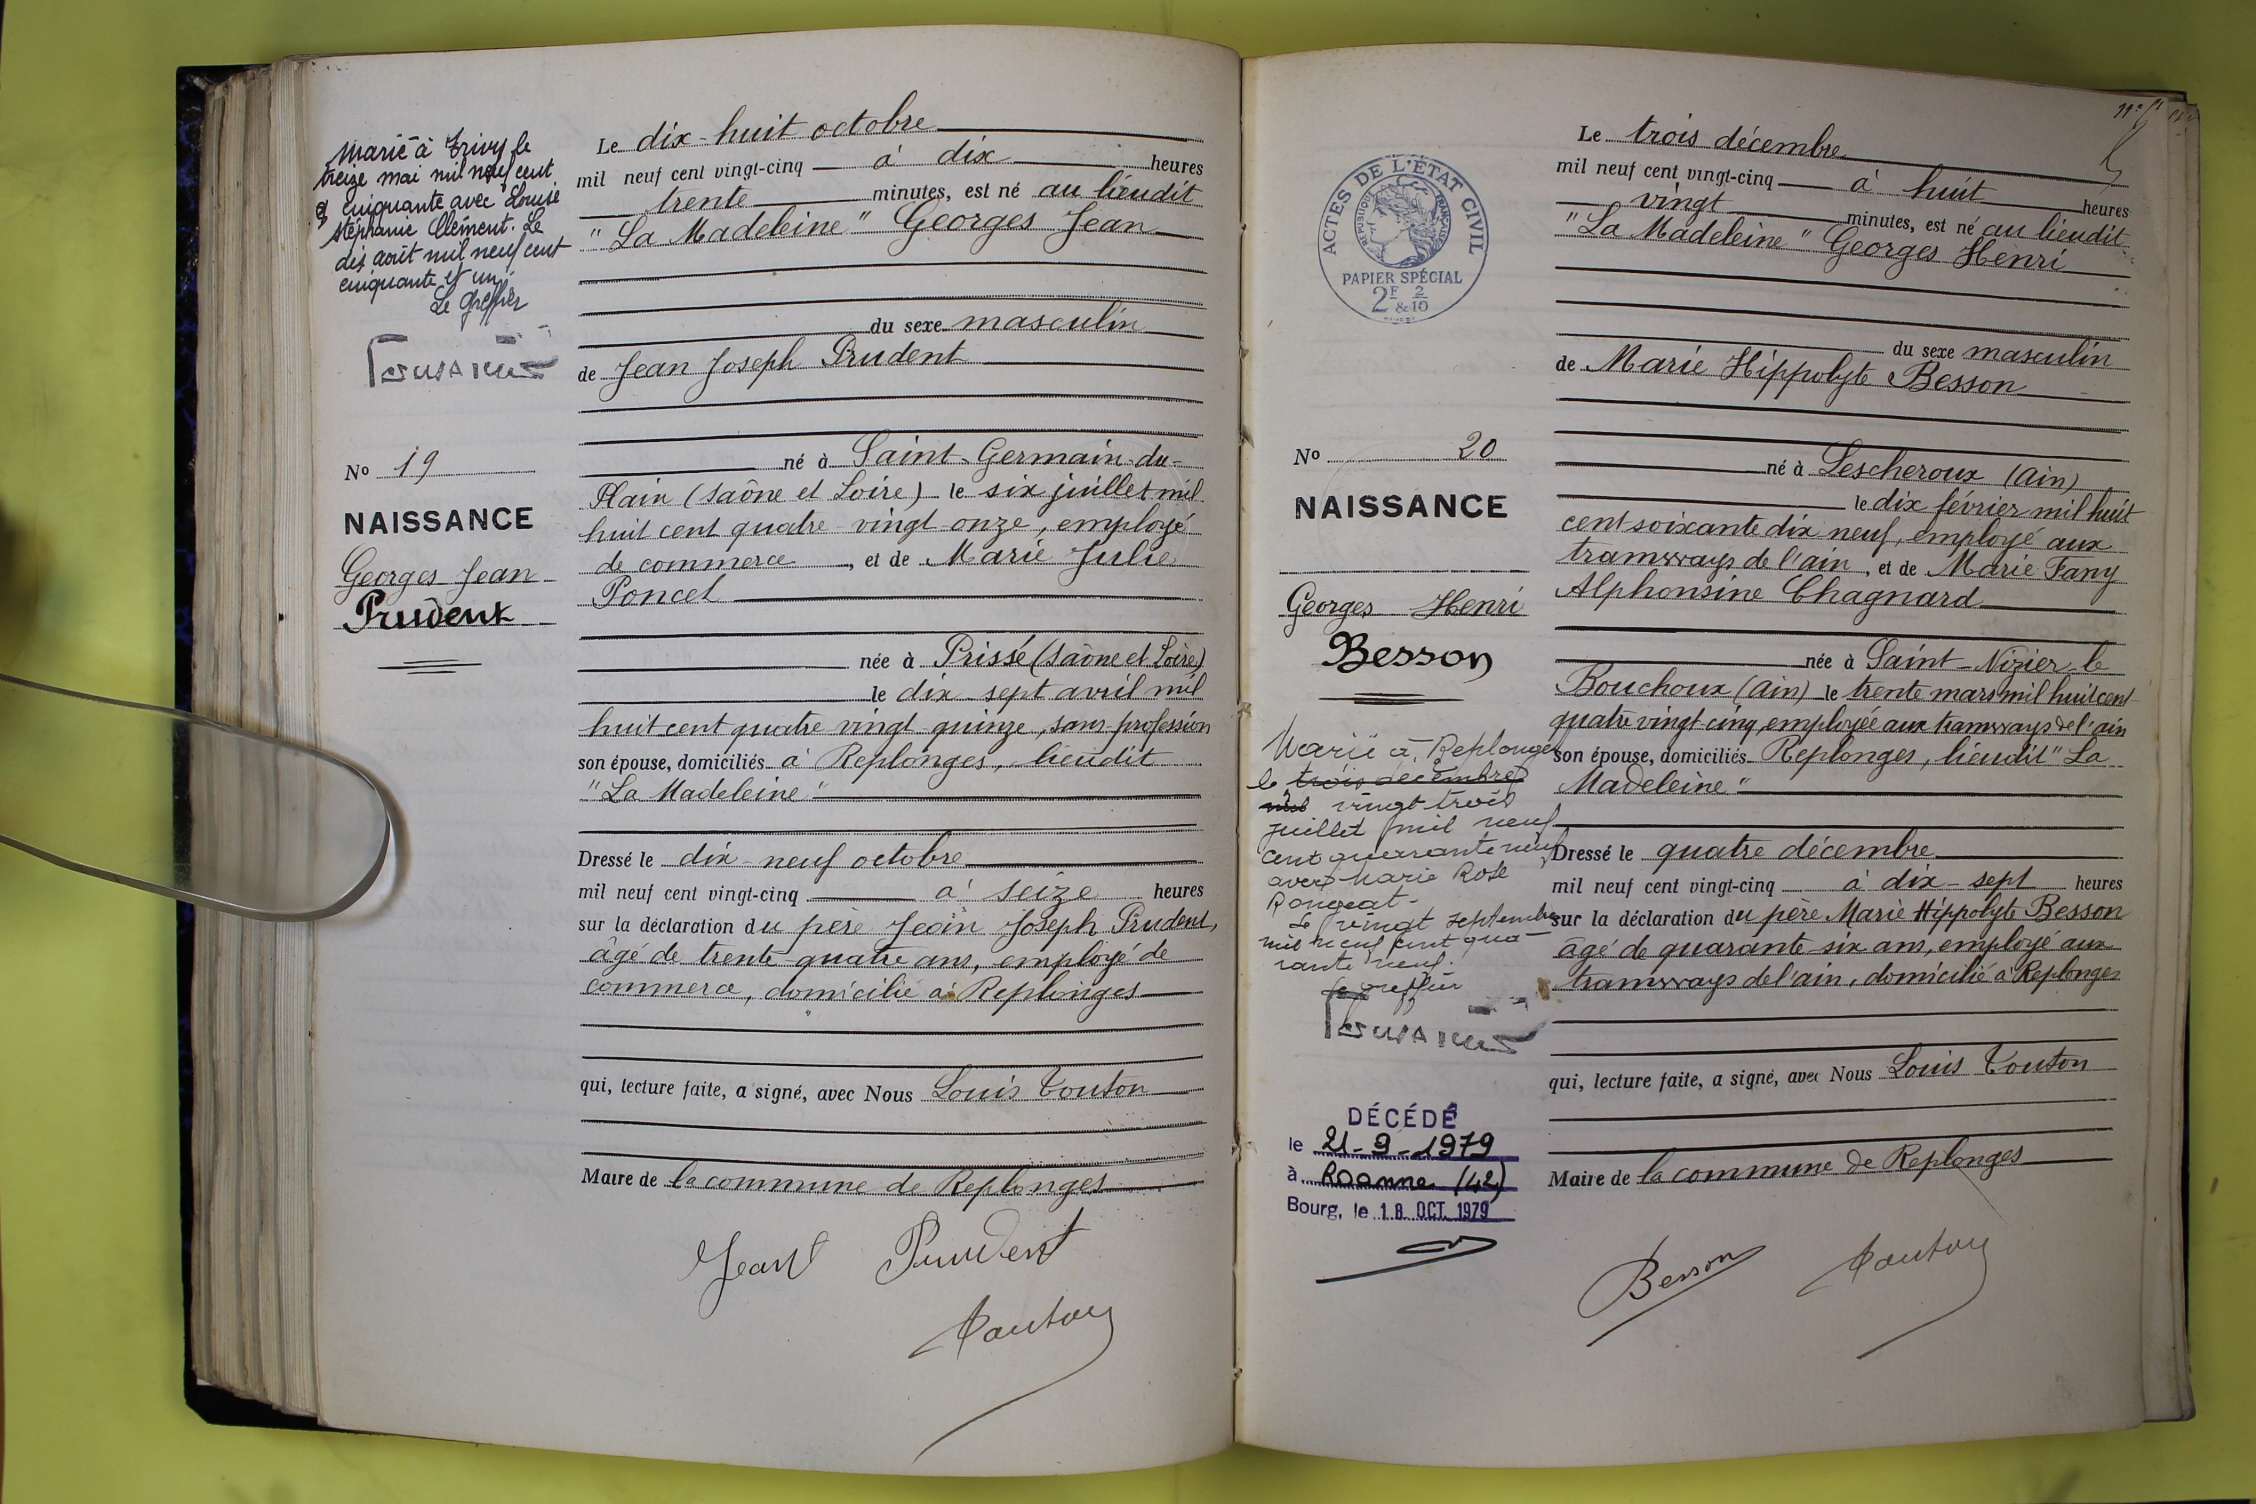 Marié à Trivy le
treize mai mil neuf cent
cinquante avec Louise
Stéphanie Clément. Le
dix août mil neuf cent
cinquante et un
Le Greffier
No 19
NAISSANCE
Georges Jean
Prudent
Le dix-huit octobre
mil neuf cent vingt-cinq à dix heures
trente minutes, est né au lieudit
"La Madeleine" Georges Jean
du sexe masculin
de Jean Joseph Prudent
né à Saint-Germain-du-
Plain (Saône et Loire) le six juillet mil
huit cent quatre-vingt onze, employé
de commerce, et de Marie Julie
Poncet
née à Prissé (Saône et Loire)
le dix-sept avril mil
huit cent quatre vingt quinze, sans profession
son épouse, domiciliés à Replonges, lieudit
"La Madeleine"
Dressé le dix-neuf octobre
mil neuf cent vingt-cinq à seize heures
sur la déclaration du père Jean Joseph Prudent,
âgé de trente-quatre ans, employé de
commerce, domicilié à Replonges
qui, lecture faite, a signé, avec Nous Louis Touton
Maire de la commune de Replonges
Jean Prudent
Touton
ACTES DE L'ÉTAT CIVIL
RÉPUBLIQUE FRANÇAISE
PAPIER SPÉCIAL
2F & 2/10
No 20
NAISSANCE
Georges Henri
Besson
Marié à Replonges
le trois décembre
mil vingt trois
juillet mil neuf
cent quarante neuf
avec Marie Rose
Rongeat.
Le vingt septembre
mil neuf cent qua-
rante neuf.
Le greffier
DÉCÉDÉ
le 21-9-1979
à Roanne (42)
Bourg, le 18 OCT. 1979
Le trois décembre
mil neuf cent vingt-cinq à huit heures
vingt minutes, est né au lieudit
"La Madeleine" Georges Henri
du sexe masculin
de Marie Hippolyte Besson
né à Lescheroux (Ain)
le dix février mil huit
cent soixante dix neuf, employé aux
tramways de l'ain, et de Marie Fany
Alphonsine Chagnard
née à Saint-Nizier-le
Bouchoux (Ain) le trente mars mil huit cent
quatre vingt cinq, employée aux tramways de l'ain
son épouse, domiciliés Replonges, lieudit "La
Madeleine"
Dressé le quatre décembre
mil neuf cent vingt-cinq à dix-sept heures
sur la déclaration du père Marie Hippolyte Besson
âgé de quarante-six ans, employé aux
tramways de l'ain, domicilié à Replonges
qui, lecture faite, a signé, avec Nous Louis Touton
Maire de la commune de Replonges
Besson Touton